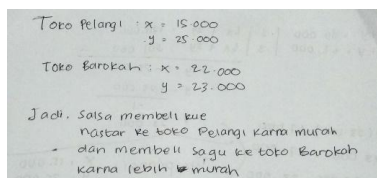 Toko Pelangi : x = 15.000
y = 25.000
Toko Barokah : x = 22.000
y = 23.000
Jadi. Salsa membeli kue
nastar ke toko Pelangi karna murah
- dan membeli sagu ke toko Barokah
karna lebih murah